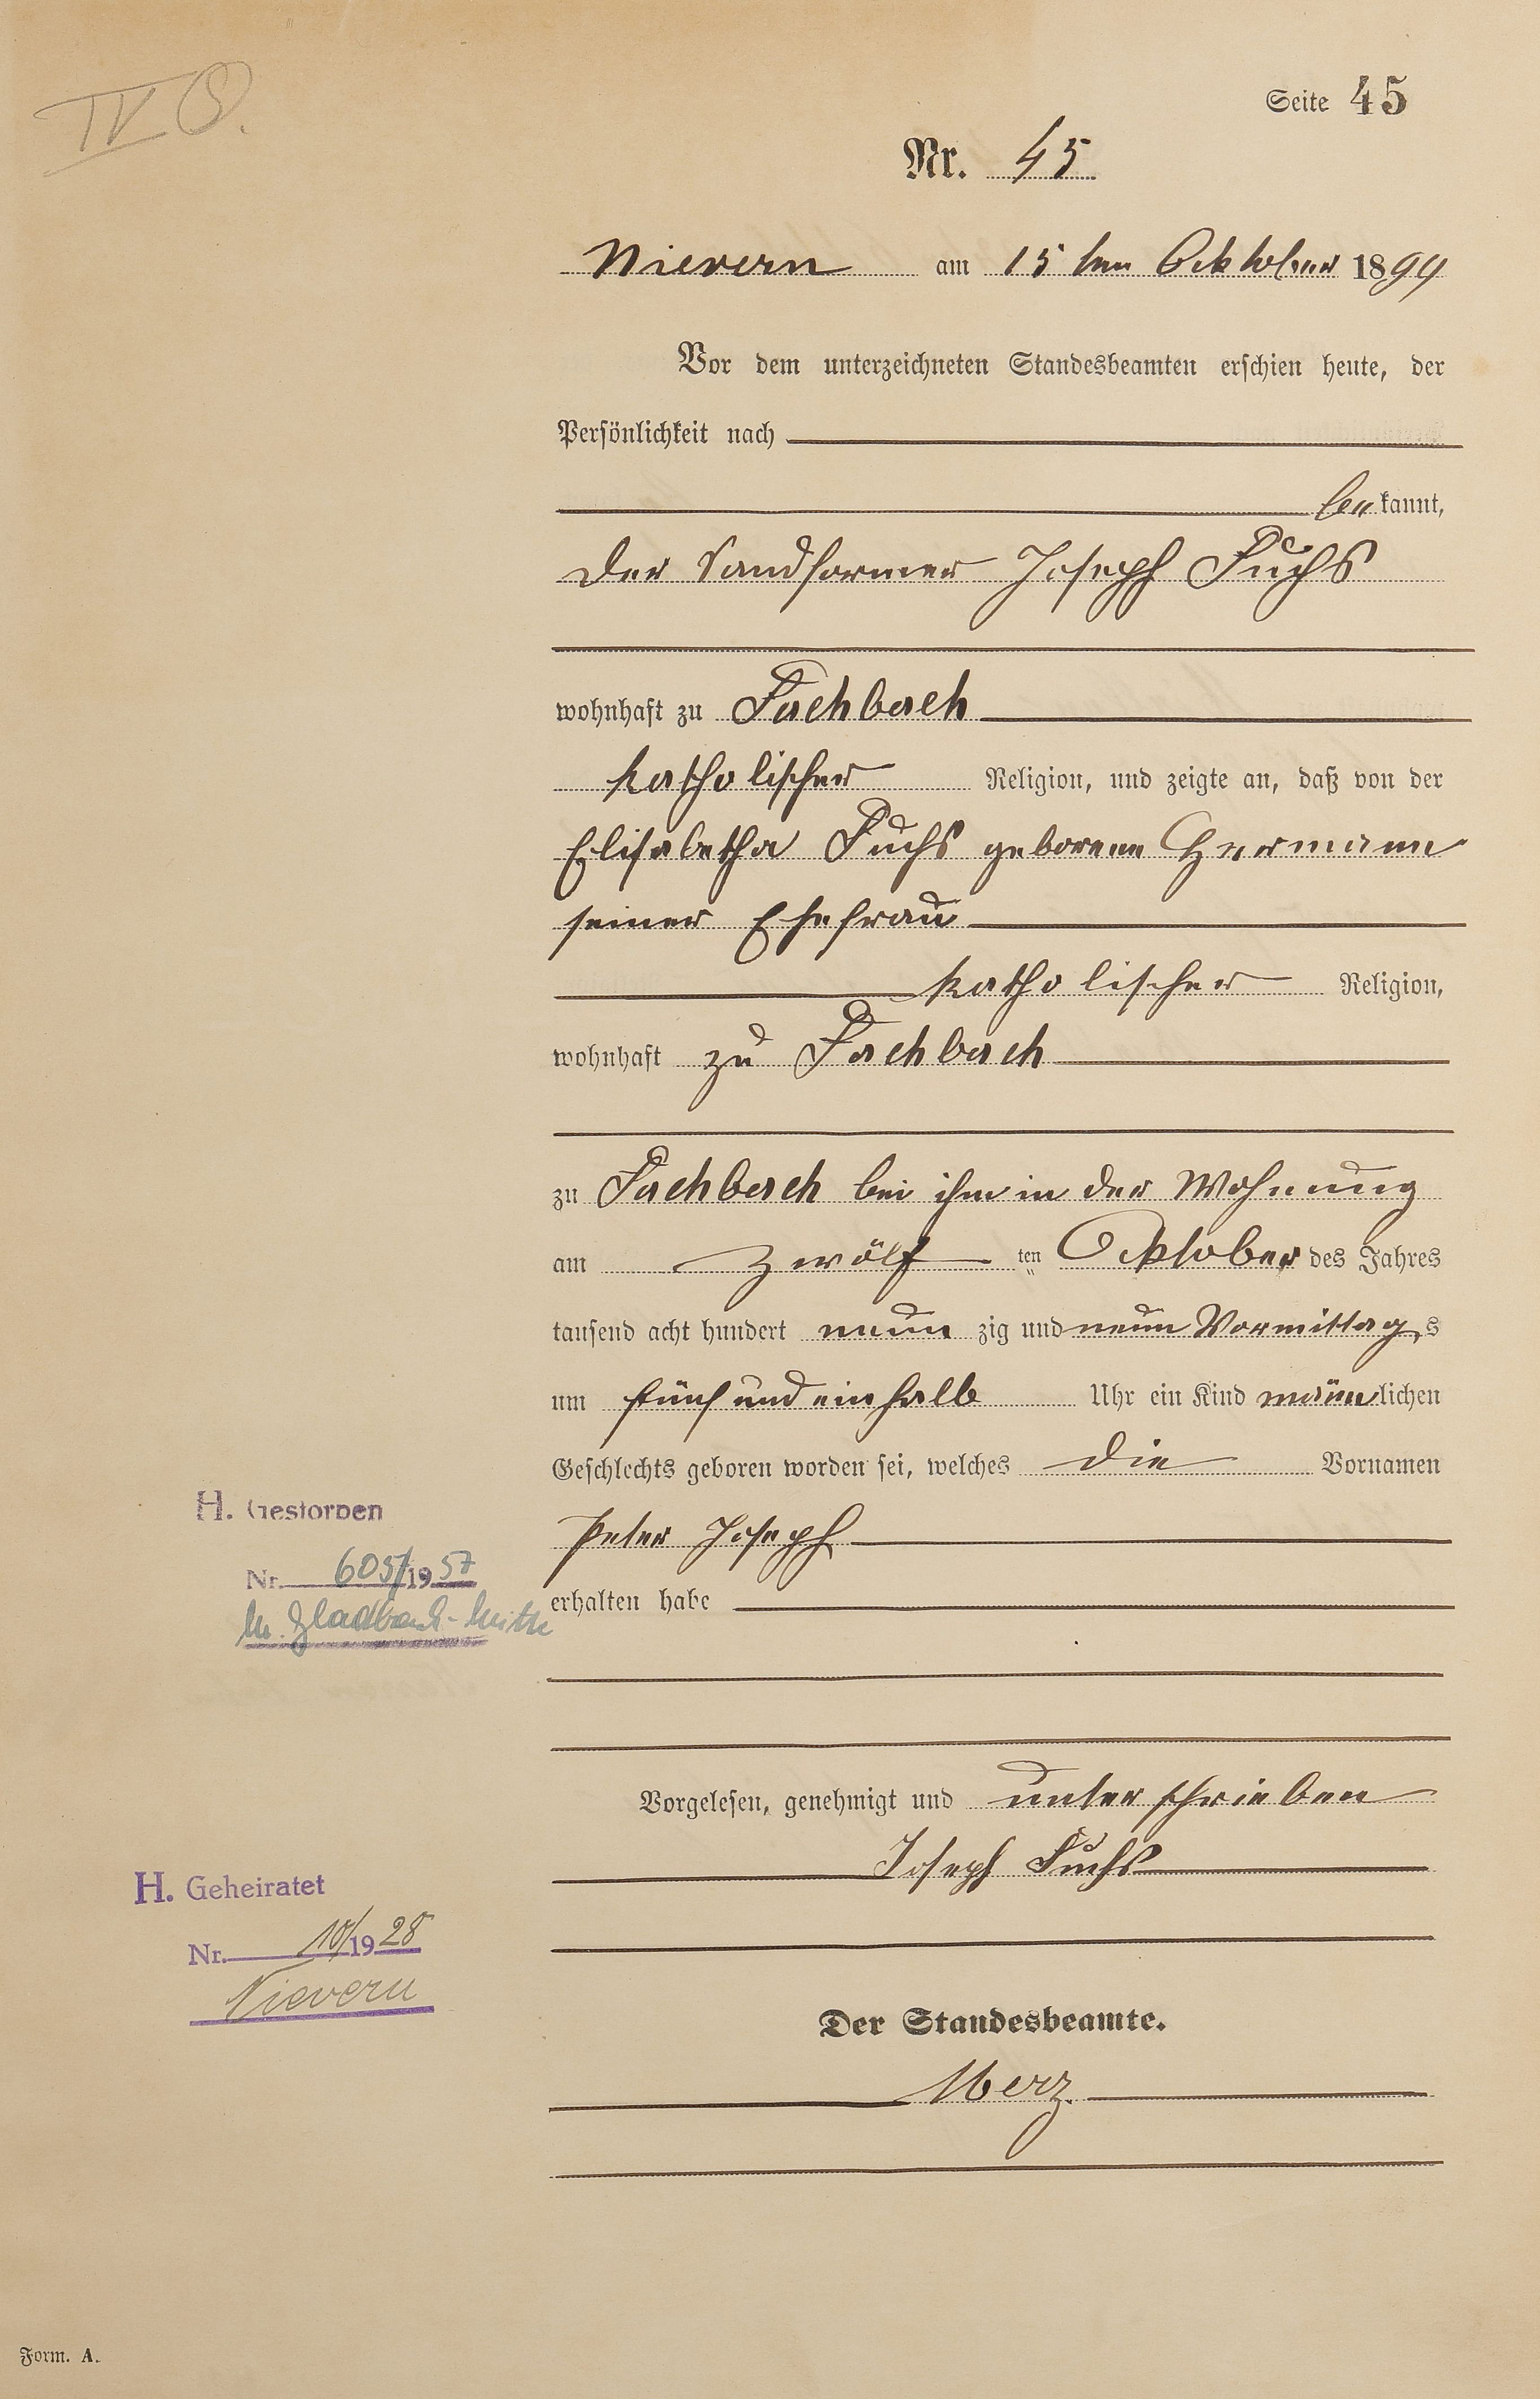 IV S.
Seite 45
Nr. 45
Nievern am 15ten Oktober 1899
Vor dem unterzeichneten Standesbeamten erschien heute, der
Persönlichkeit nach
be kannt,
der Sandformer Joseph Fuchs
wohnhaft zu Fachbach
katholischer Religion, und zeigte an, daß von der
Elisabetha Fuchs geborene Hermann
seiner Ehefrau
katholischer Religion,
wohnhaft zu Fachbach
zu Fachbach bei ihm in der Wohnung
am zwölf ten Oktober des Jahres
tausend acht hundert neun zig und neun Vormittags
um fünf und ein halb Uhr ein Kind männlichen
Geschlechts geboren worden sei, welches die Vornamen
Peter Joseph
erhalten habe
H. Gestorben
Nr. 605/1957
M. Gladbach-Mitte
Vorgelesen, genehmigt und unterschrieben
Joseph Fuchs
H. Geheiratet
Nr. 10/1928
Nievern
Der Standesbeamte.
Merz.
Form. A.